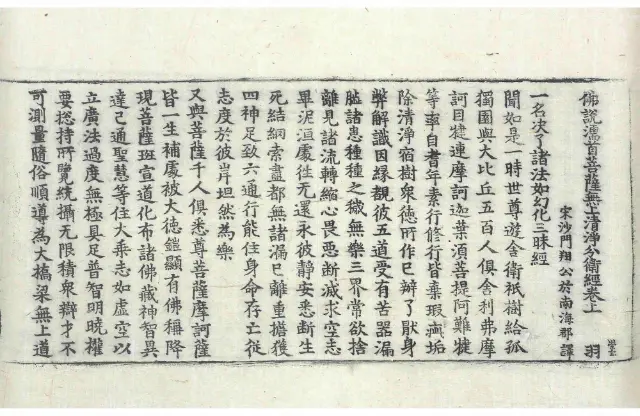 佛說濡首菩薩無上清淨分衛經卷上 羽
宋沙門翔公於南海郡譯
一名決了諸法如幻化三昧經
聞如是一時世尊遊舍衛祇樹給孤
獨園與大比丘五百人俱舍利弗摩
訶目揵連摩訶迦葉須菩提阿難
等率自耆年素行修行皆棄瑕垢
除清淨宿樹衆德所作已辦了猒身
弊解識因緣覩彼五道受有苦器漏
盛諸患種種之穢無樂三界常欲捨
離見諸流轉縮心畏惡斷滅求空志
畢泥洹處徃無還永彼靜安悉斷生
死結網索盡都無諸漏已離重擔獲
四神足致六通行能住身命存亡從
志度於彼岸坦然為樂
又與菩薩千人俱悉尊菩薩摩訶薩
皆一生補處被大德鎧顯有佛稱降
現菩薩班宣道化布諸佛藏神智異
達已通聖慧等住大乘志如虛空以
立廣法過度無極具足普智明曉權
要揔持所覽統攝無限積衆辯才不
可測量隨俗順導為大橋梁無上道